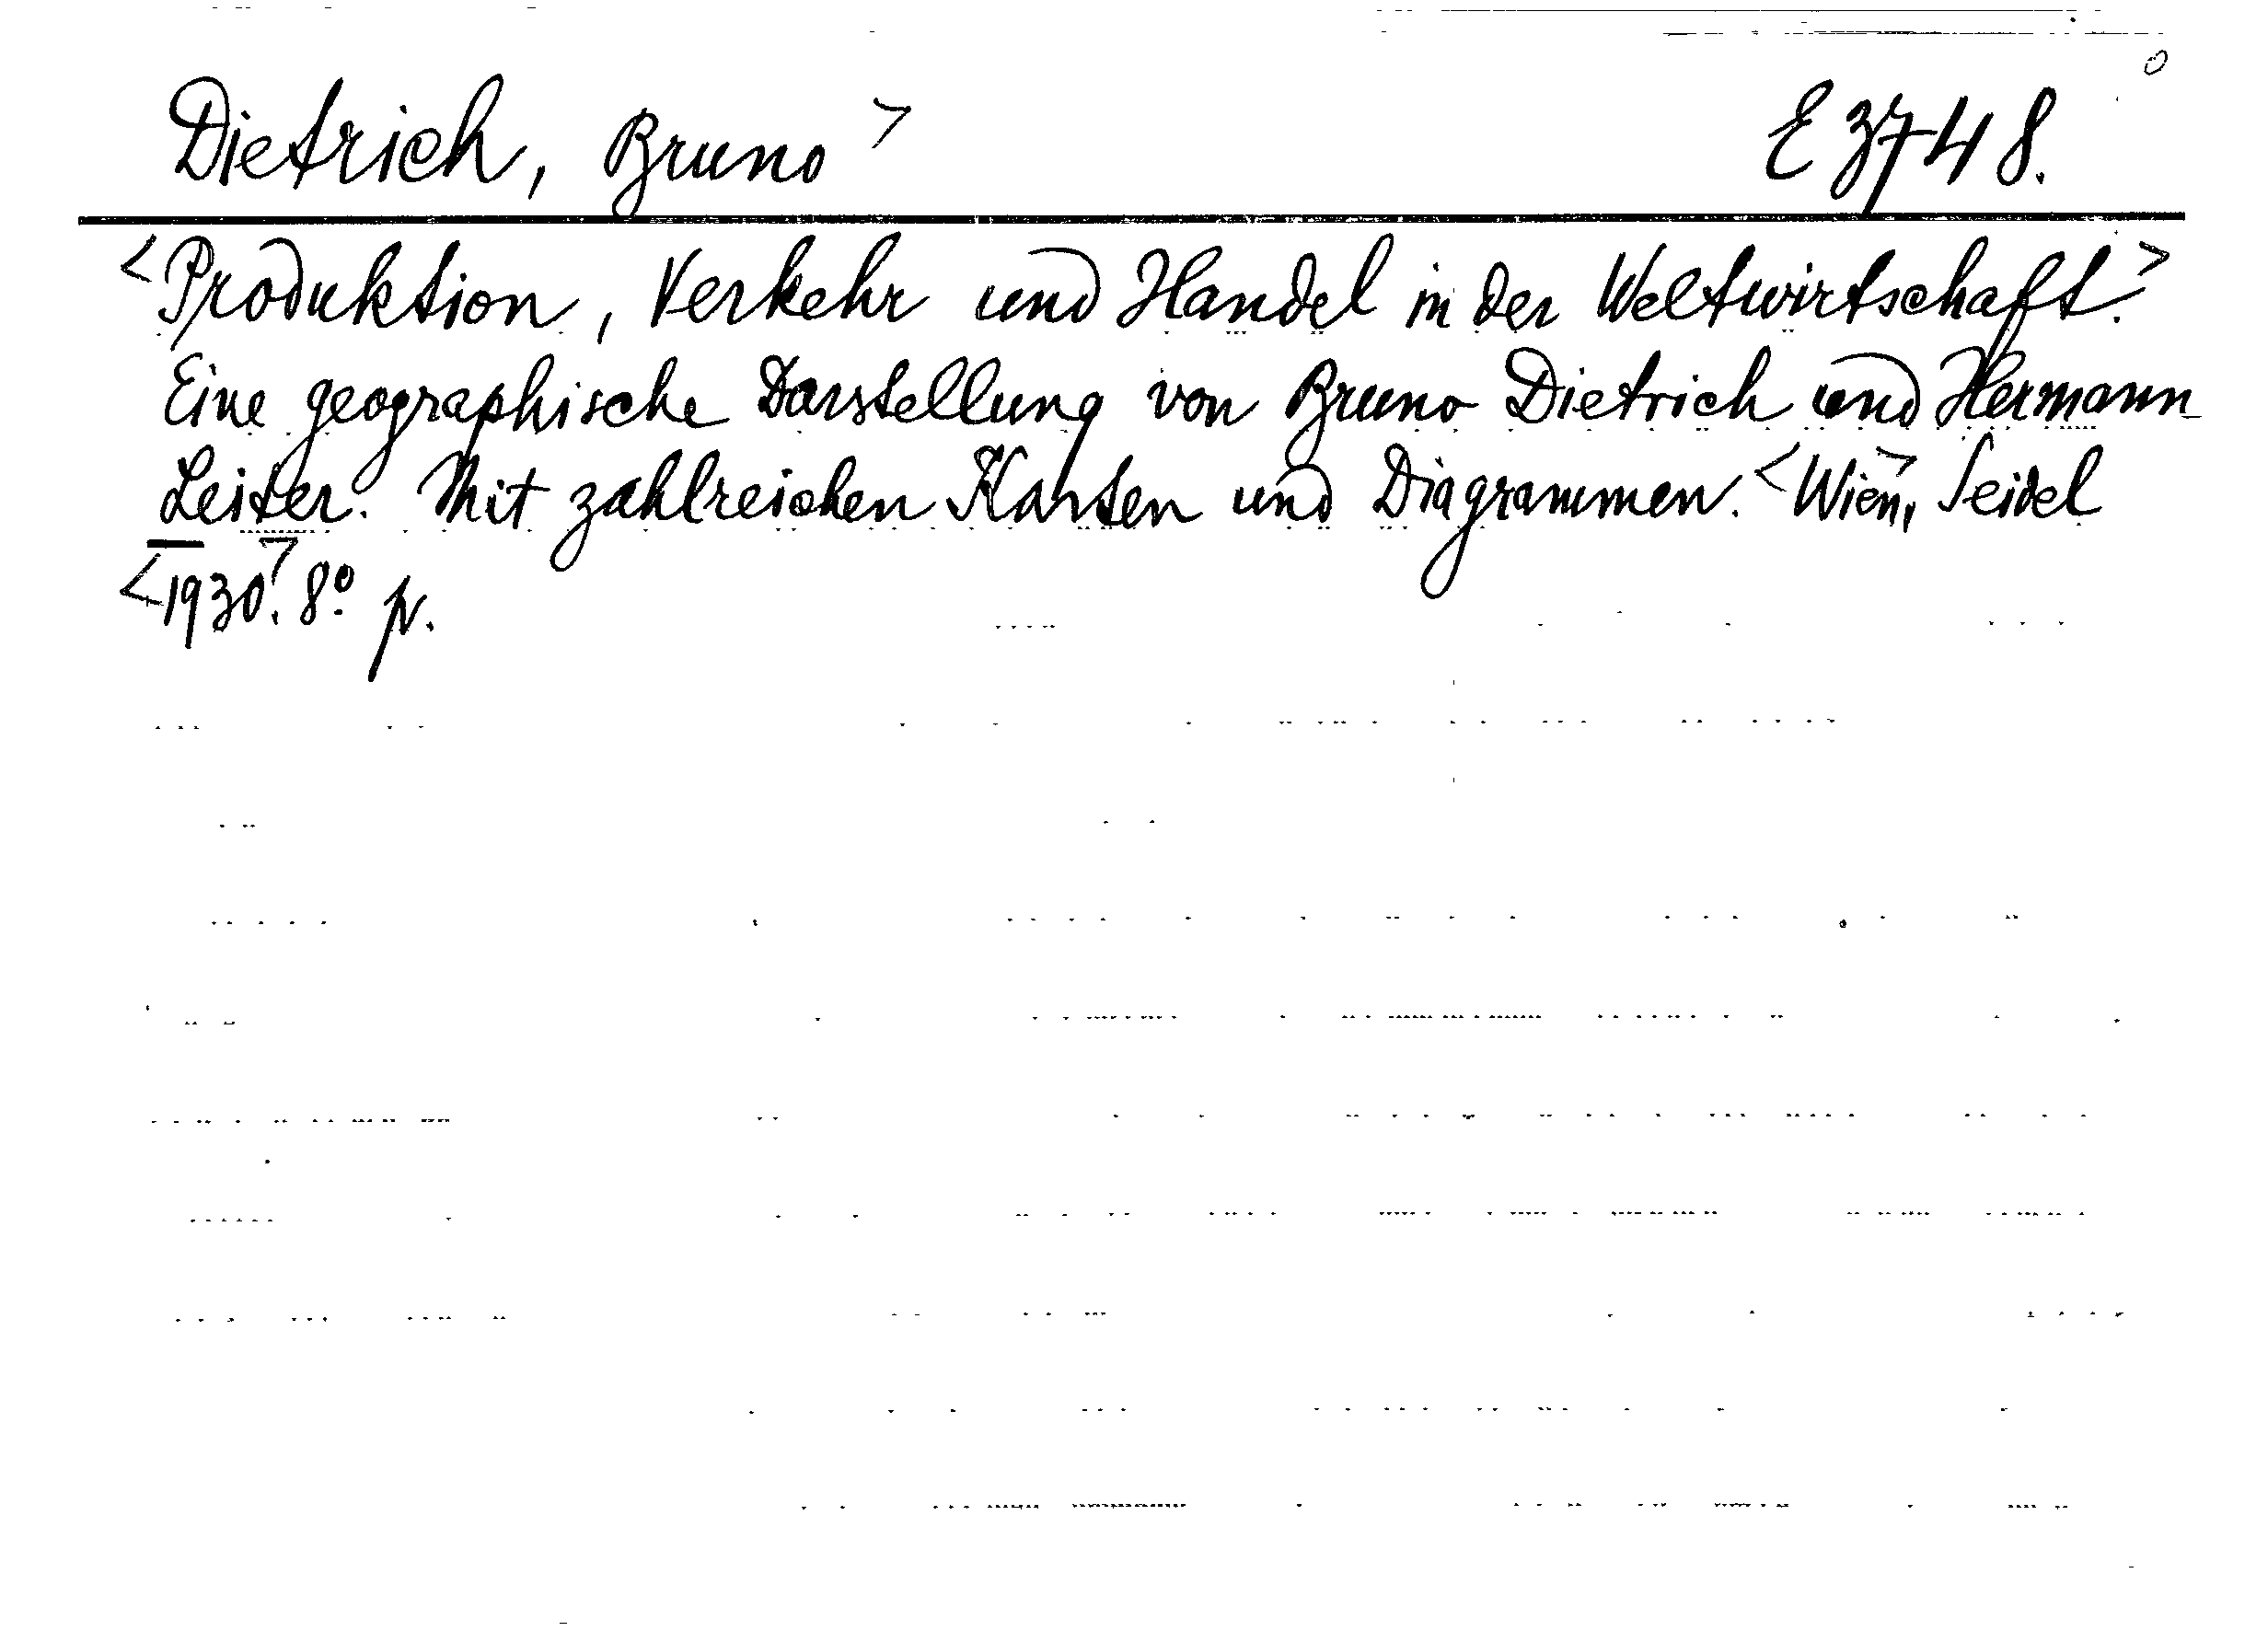 Dietrich, Bruno > E 3748.
<Produktion, Verkehr und Handel in der Weltwirtschaft.>
Eine geographische Darstellung von Bruno Dietrich und Hermann
Leiter. Mit zahlreichen Karten und Diagrammen. <Wien>, Seidel
<1930>. 8° p.